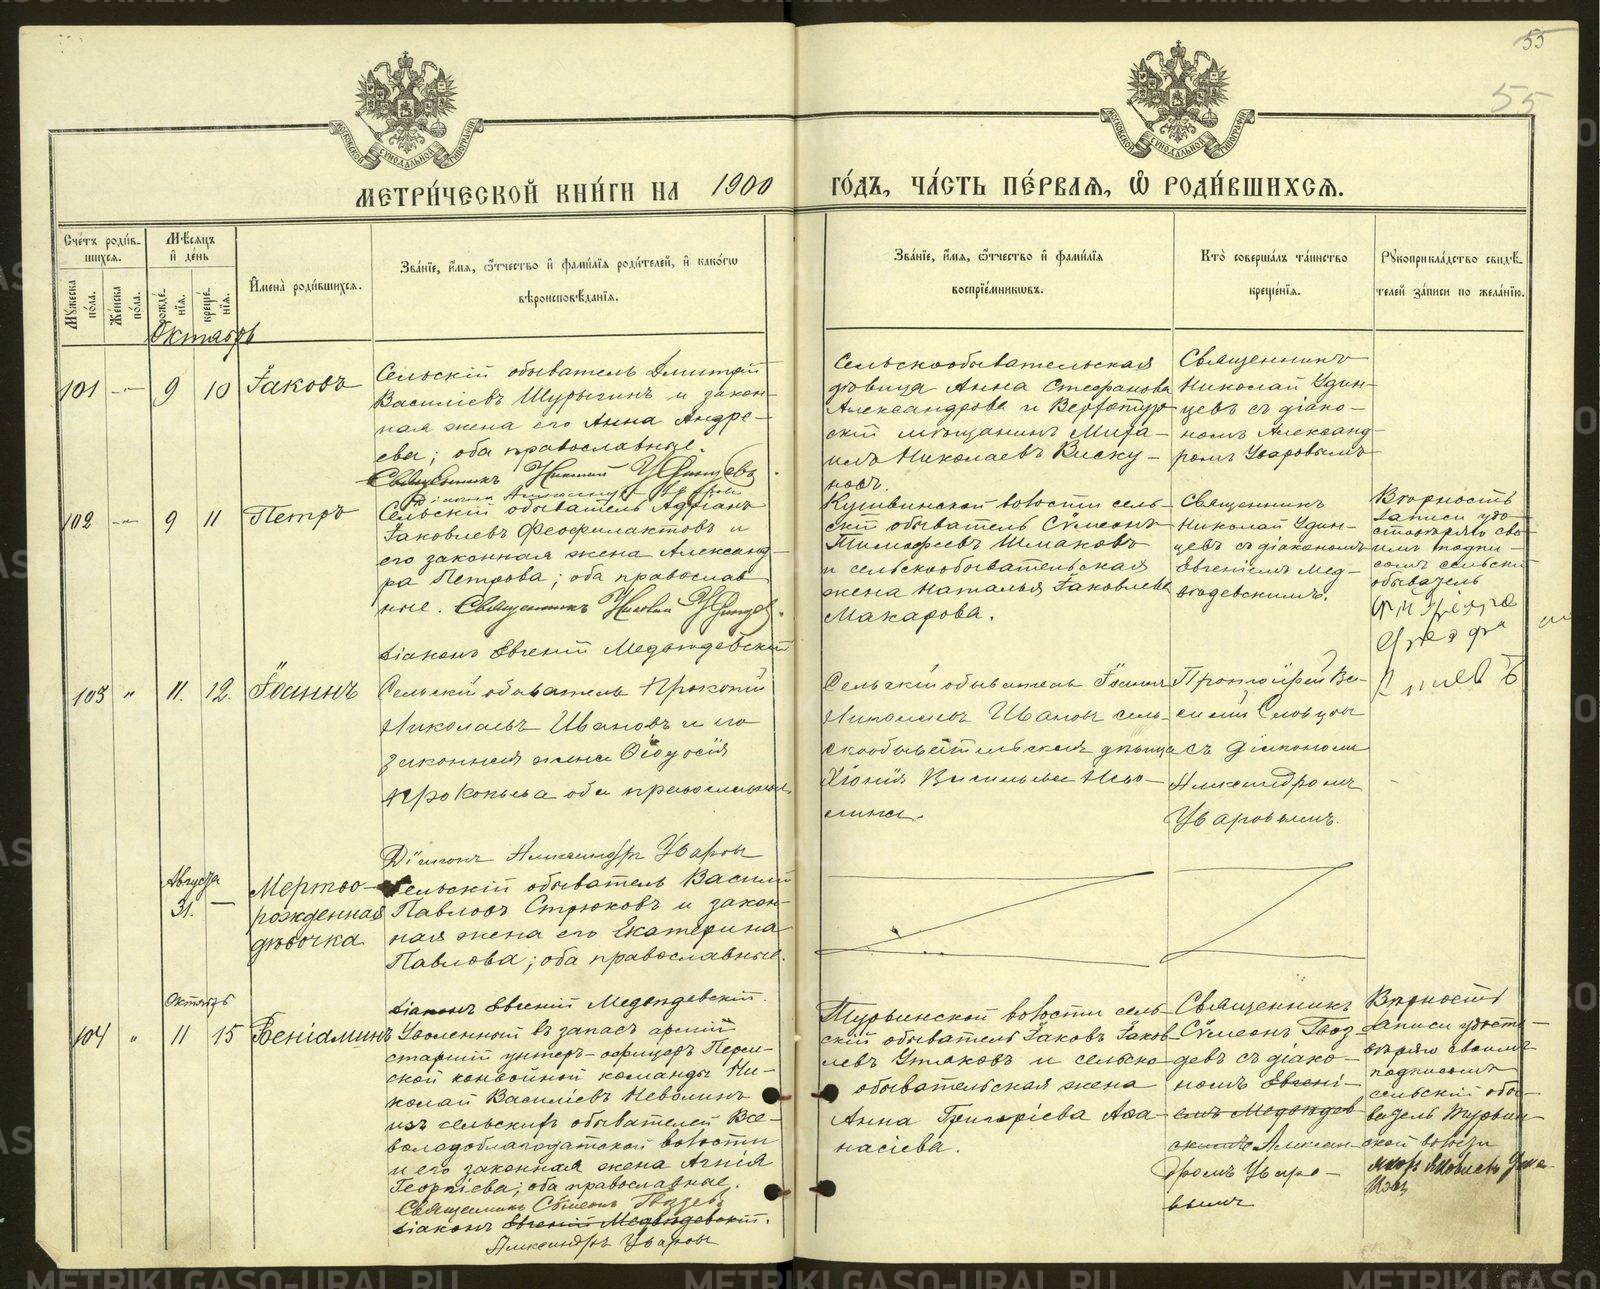 55
55
МОСКОВСКОЙ СѴНОДАЛЬНОЙ ТИПОГРАФІИ
МОСКОВСКОЙ СѴНОДАЛЬНОЙ ТИПОГРАФІИ
МЕТРИ́ЧЕСКОЙ КНИ́ГИ НА 1900 ГО́ДЪ, ЧА́СТЬ ПЕ́РВАЯ, Ѡ РОДИ́ВШИХСЯ.
Сче́тъ роди́в-
шихся.
Мѣсяцъ
и де́нь
Мꙋжеска по́ла.
Же́нска по́ла.
рожде́-
нїя.
креще́-
нїя.
И҆мена̀ роди́вшихся.
Зва́нїе, и҆́мя, ѻ҆́тчество и҆ фами́лїя роди́телей, и҆ како́гѡ
вѣроисповѣ́данїя.
Зва́нїе, и҆́мя, ѻ҆́тчество и҆ фами́лїя
воспрїе́мникѡвъ.
Кто̀ соверша́лъ та́инство
креще́нїя.
Рꙋкоприкла́дство свидѣ́-
телей за́писи по жела́нїю.
Октябрь
101 -"- 9 10 Іаковъ
Сельскій обыватель Дмитрій
Василіевъ Шурыгинъ и закон-
ная жена его Анна Андре-
ева; оба православные.
Священникъ Николай Удинцевъ
Діаконъ Александръ Уваровъ
Сельскообывательская
дѣвица Анна Стефанова
Александрова и Верхотур-
скій мѣщанинъ Миха-
илъ Николаевъ Виску-
новъ.
Священникъ
Николай Удин-
цевъ съ діако-
номъ Александ-
ромъ Уваровымъ
102 -"- 9 11 Петръ
Сельскій обыватель Адріанъ
Іаковлевъ Феофилактовъ и
его законная жена Александ-
ра Петрова; оба православ-
ные. Священникъ Николай Удинцевъ.
діаконъ Евгеній Медвѣдевскій
Кушвинской волости сель-
скій обыватель Сѵмеонъ
Тимофеевъ Шмаковъ
и сельскообывательская
жена Наталья Іаковлева
Макарова.
Священникъ
Николай Удин-
цевъ съ діакономъ
Евгеніемъ Мед-
вѣдевскимъ.
Вѣрность
записи удо-
стовѣряю сво-
имъ подпи-
сомъ сельскій
обыватель
103 " 11. 12. Іоаннъ
Сельскій обыватель Прокопій
Николаевъ Ивановъ и его
законная жена Ѳеодосія
Прокопьева оба православные
Діаконъ Александръ Уваровъ
Сельскій обыватель Іоаннъ
Николаевъ Ивановъ сель-
скообывательская дѣвица
Хіонія Васильева
Протоіерей Ва-
силій Словцовъ
съ діакономъ
Александромъ
Уваровымъ.
Августа
31. — Мертво-
рожденная
дѣвочка
Сельскій обыватель Василій
Павловъ Стрюковъ и закон-
ная жена его Екатерина
Павлова; оба православные.
діаконъ Евгеній Медвѣдевскій.
Октябрь
104 " 11 15 Веніаминъ
Уволенный въ запасъ арміи
старшій унтеръ-офицеръ Перм-
ской конвойной команды Ни-
колай Василіевъ Неволинъ
изъ сельскихъ обывателей Все-
володоблагодатской волости
и его законная жена Агнія
Георгіева; оба православные.
Священникъ Сѵмеонъ Гвоздевъ
діаконъ Евгеній Медвѣдевскій.
Александръ Уваровъ
Турьинской волости сель-
скій обыватель Іаковъ Іаков-
левъ Ушаковъ и сельско
обывательская жена
Анна Григоріева Афа-
насіева.
Священникъ
Сѵмеонъ Гвоз-
девъ съ діако-
номъ Евгені-
емъ Медвѣдев
скимъ Алексан-
дромъ Уваро-
вымъ
Вѣрность
записи удосто-
вѣряю своимъ
подписомъ
сельскій обы-
ватель Турьин-
ской волости
Яковъ Яковлевъ Уша-
ковъ
METRIKI.GASO-URAL.RU
METRIKI.GASO-URAL.RU
METRIKI.GASO